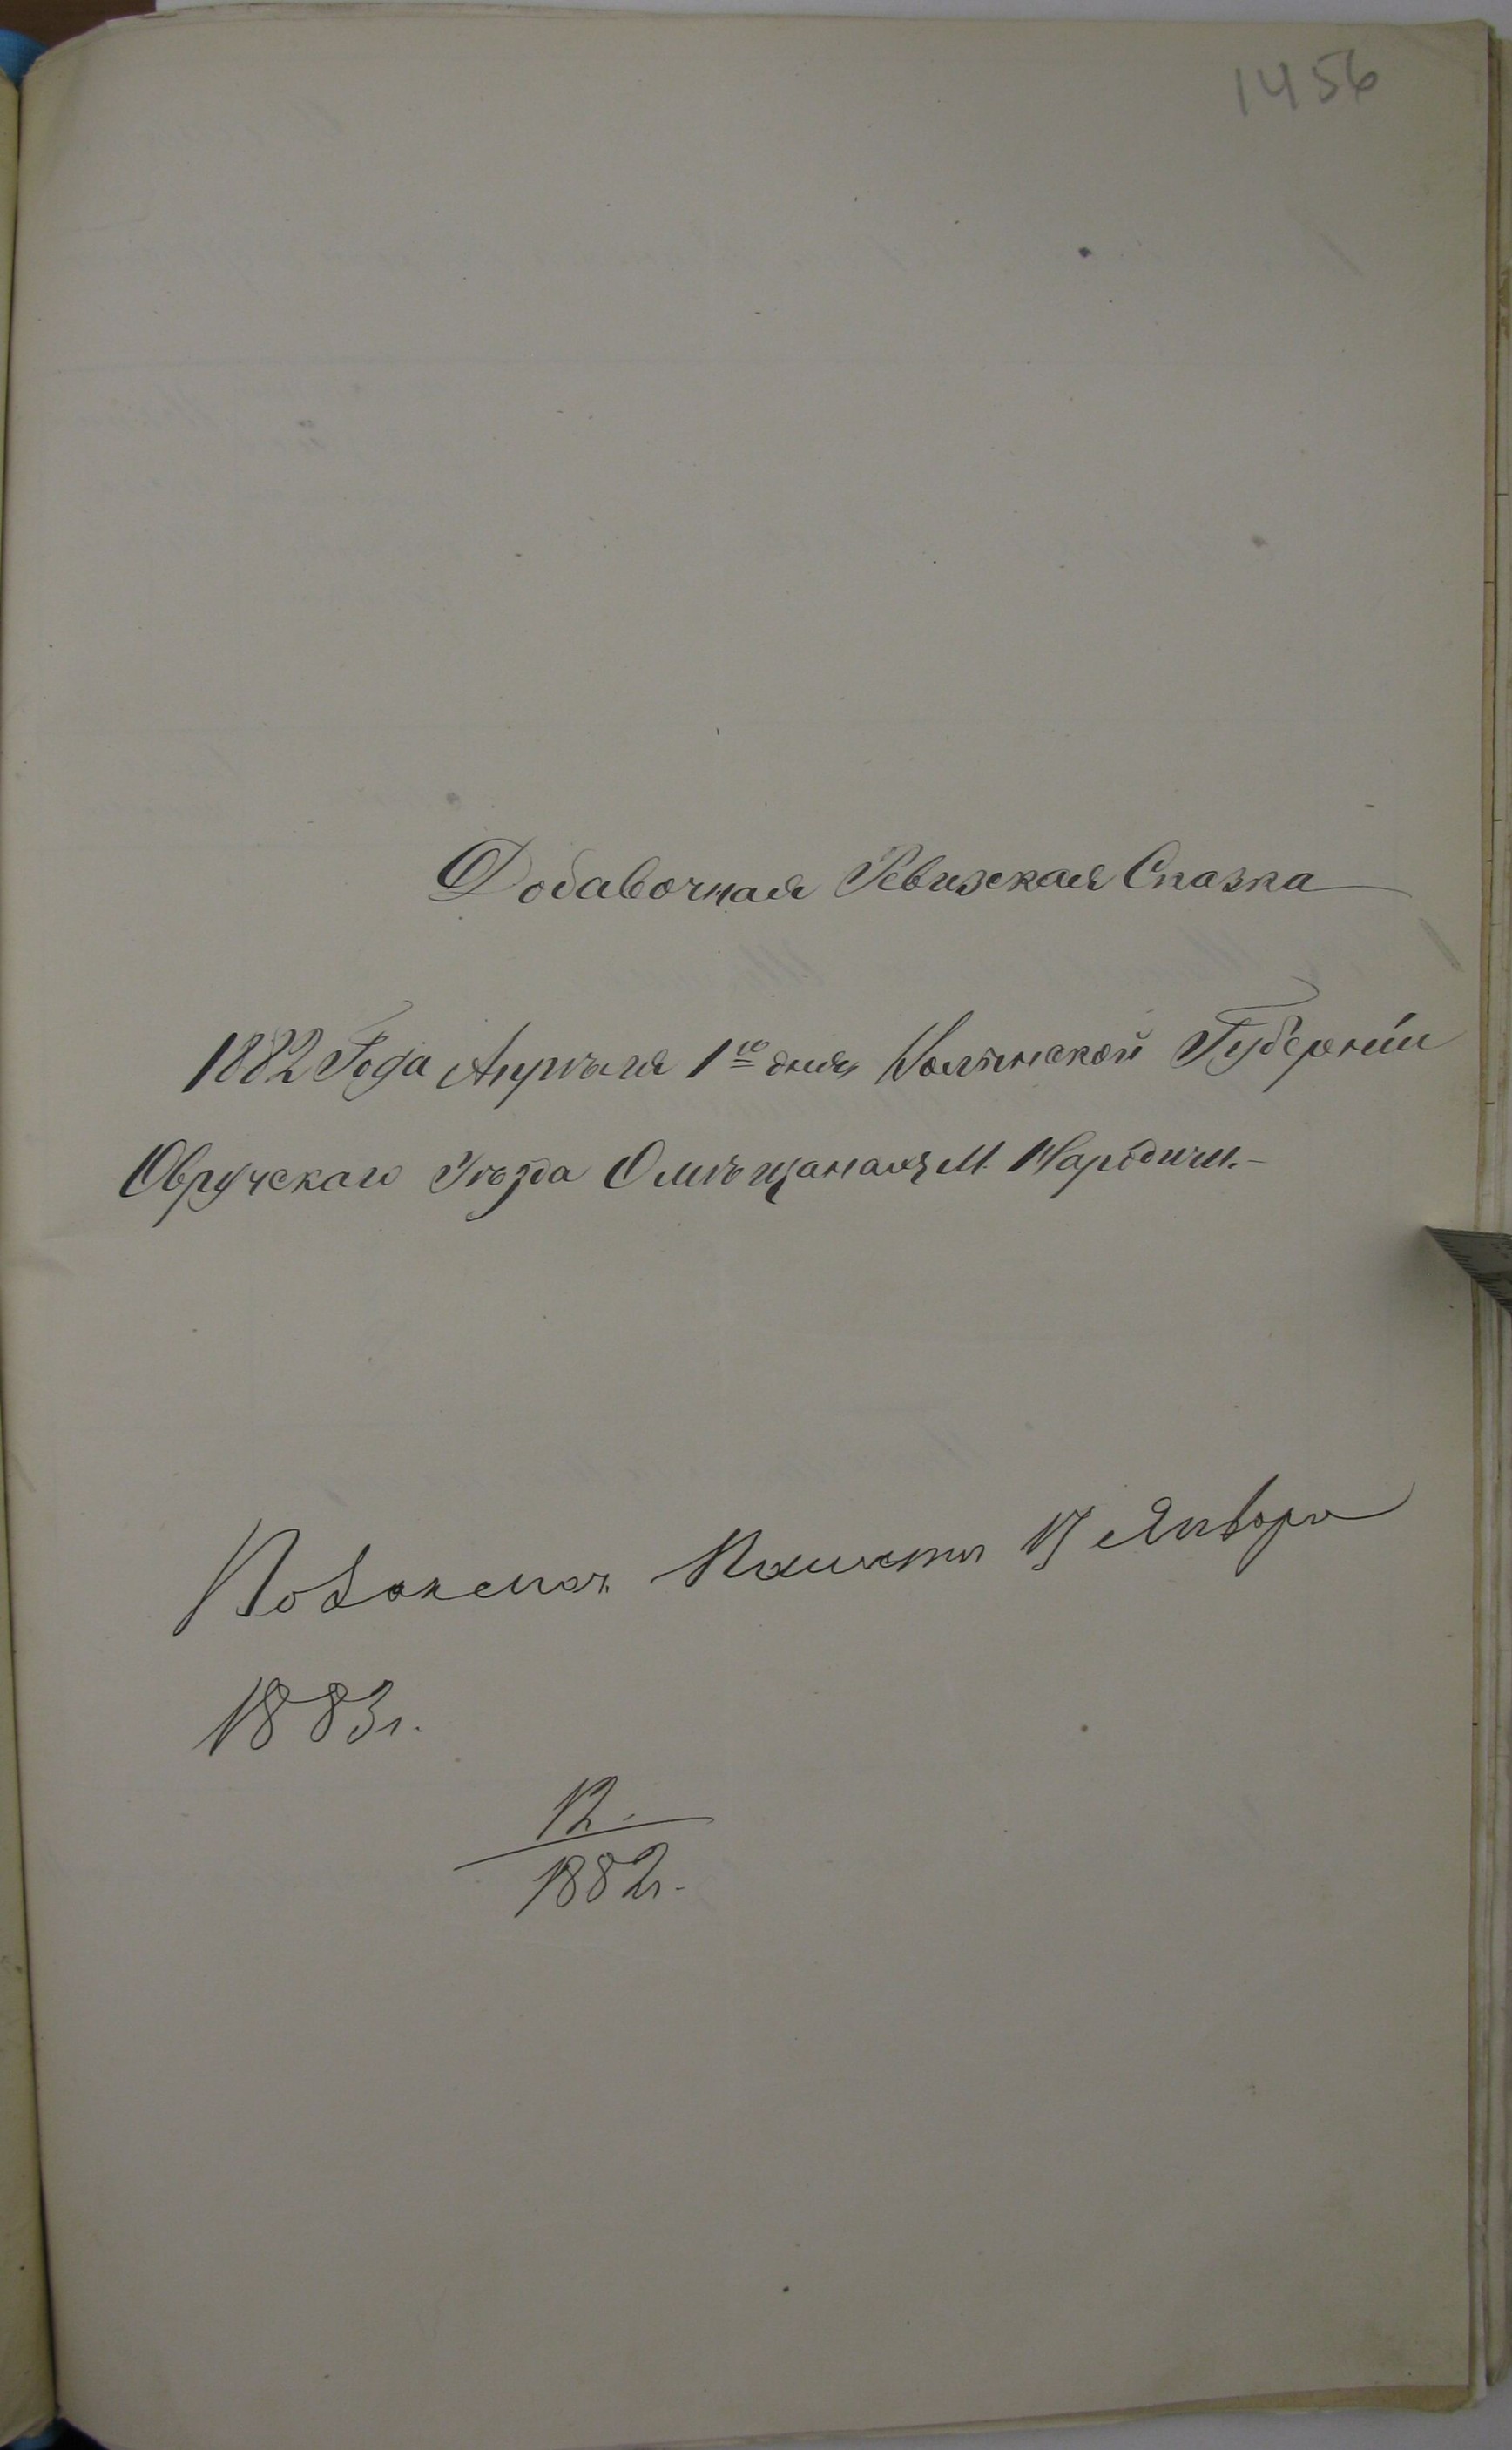 1456
Добавочная Ревизская Сказка
1882 Года Апрѣля 1го дня, Волынской Губерніи
Овручскаго Уѣзда О мѣщанахъ М. Народичи.-
17 Января
1883г.
12.
1882г.